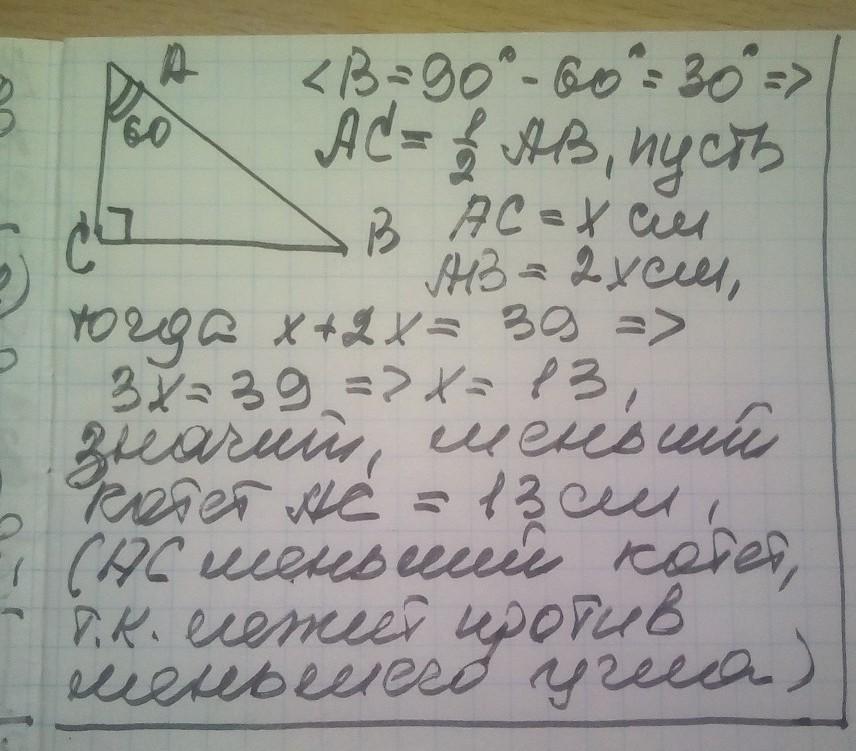 A
60
C
B
<B = 90° - 60° = 30° =>
AC = 1/2 AB, пусть
AC = x см
AB = 2x см,
тогда x + 2x = 39 =>
3x = 39 => x = 13,
значит, меньший
катет AC = 13 см,
(AC меньший катет,
т.к. лежит против
меньшего угла.)